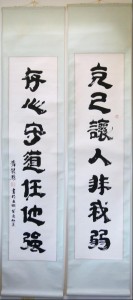 克己讓人非我弱
存心守道任他強